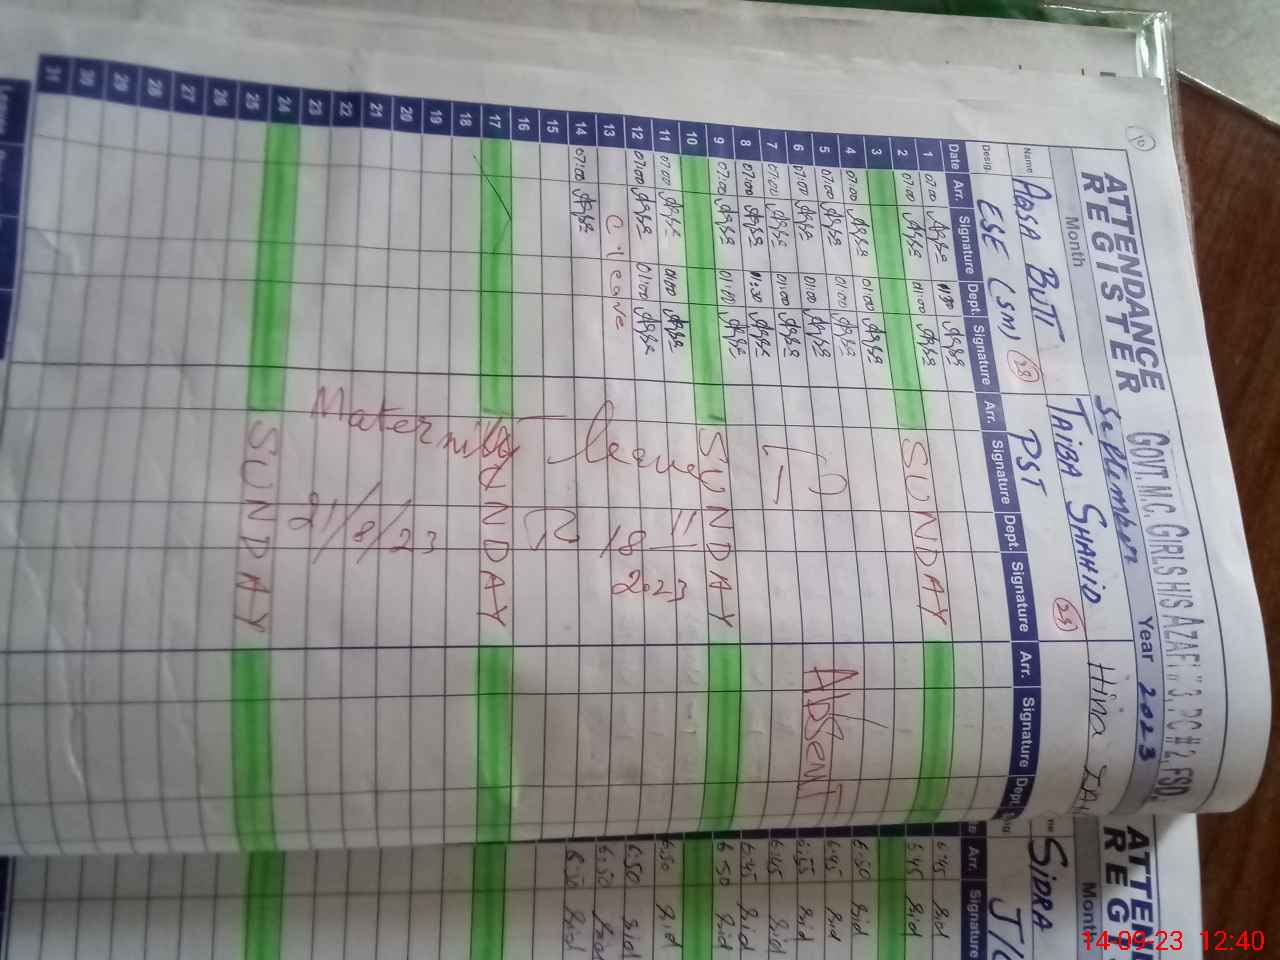 ATTENDANCE
REGISTER
GOVT. M.C. GIRLS H/S AZAFI # 3, PC # 2, FSD.
Month September Year 2023
10
Name AQSA BUTT 28 TAIBA SHAHID 25 Hina
Desig. ESE (SM) PST
Date Arr. Signature Dept. Signature Arr. Signature Dept. Signature Arr. Signature Dept.
1 07:00 Aqsa 11:30 Aqsa
2 07:00 Aqsa 01:00 Aqsa
3 SUNDAY
4 07:00 Aqsa 01:00 Aqsa
5 07:00 Aqsa 01:00 Aqsa
6 07:00 Aqsa 01:00 Aqsa Absent
7 07:00 Aqsa 01:00 Aqsa
8 07:00 Aqsa 11:30 Aqsa
9 07:00 Aqsa 01:00 Aqsa
10 SUNDAY
11 07:00 Aqsa 01:00 Aqsa
12 07:00 Aqsa 01:00 Aqsa
13 C. leave
14 07:00 Aqsa
15
16
17 SUNDAY
18
19
20
21
22
23
24 SUNDAY
25
26
27
28
29
30
31
Maternity leave
21/8/23
18 11
2023
ATTEN
REG
Month
SIDRA
Arr.
Signature
6:45 Sid
5:45 Sid
6:40 Sid
6:45 Sid
6:55 Sid
6:45 Sid
6:45 Sid
6:50 Sid
6:50 Sid
6:50 Sid
6:50 Sid
6:50 Sid
14-09-23 12:40